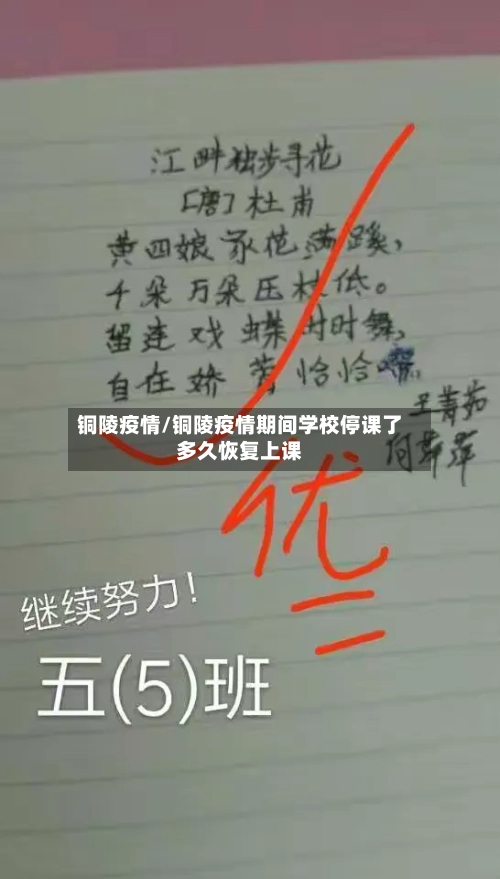 江畔独步寻花
[唐]杜甫
黄四娘家花满蹊,
千朵万朵压枝低。
留连戏蝶时时舞,
自在娇莺恰恰啼。
王菁茹
何苹苹
铜陵疫情/铜陵疫情期间学校停课了
多久恢复上课
优
继续努力!
五(5)班